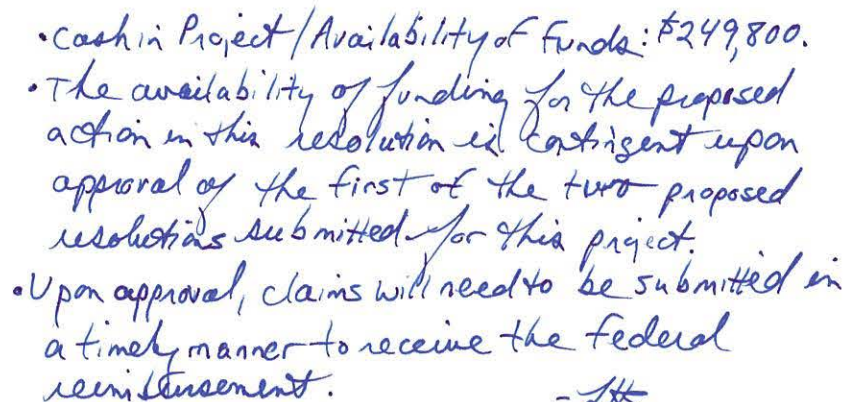 • Cash in Project/Availability of Funds: $249,800.
• The availability of funding for the proposed
action in this resolution is contingent upon
approval of the first of the two proposed
resolutions submitted for this project.
• Upon approval, claims will need to be submitted in
a timely manner to receive the federal
reimbursement.